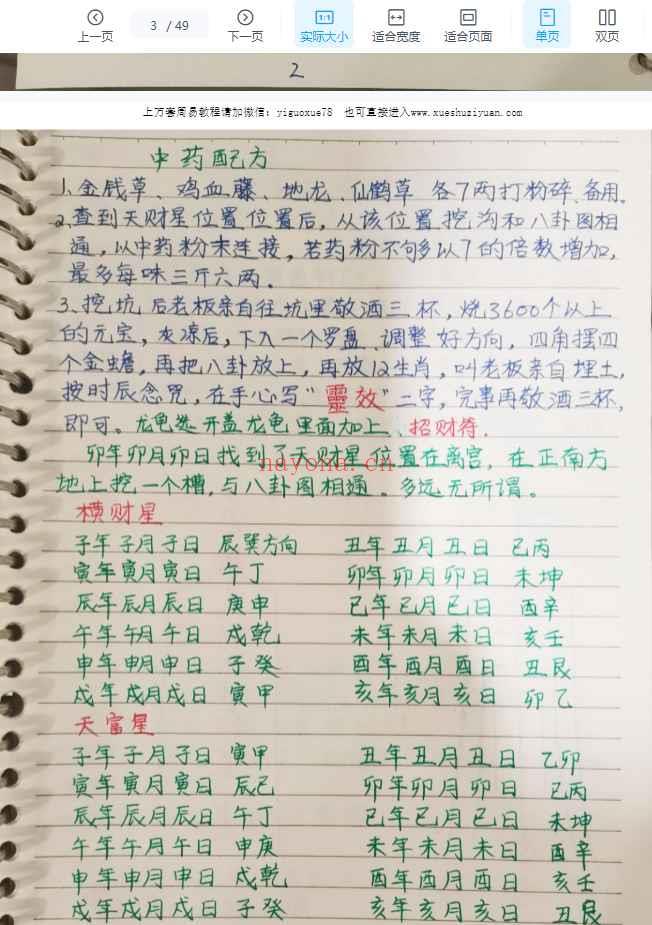 上一页 3 / 49 下一页 实际大小 适合宽度 适合页面 单页 双页
2
上万套周易教程请加微信：yiguoxue78 也可直接进入www.xueshuziyuan.com
中药配方
1、金戋草、鸡血藤、地龙、仙鹤草 各7两打粉碎、备用。
2、查到天财星位置位置后，从该位置挖沟和八卦图相
通，以中药粉末连接，若药粉不够多以7的倍数增加，
最多每味三斤六两。
3、挖坑 后老板亲自往坑里敬酒三杯，烧3600个以上
的元宝，灰凉后，下入一个罗盘、调整好方向，四角摆四
个金蟾，再把八卦放上，再放12生肖，叫老板亲自埋土，
按时辰念咒，在手心写“靈效”二字，完事再敬酒三杯，
即可。龙龟选开盖龙龟里面加上、招财符.
卯年卯月卯日找到了天财星位置在离宫，在正南方
nayona.cn
地上挖一个槽，与八卦图相通。多远无所谓。
横财星
子年子月子日 辰巽方向 丑年丑月丑日 巳丙
寅年寅月寅日 午丁 卯年卯月卯日 未坤
辰年辰月辰日 庚申 巳年巳月巳日 酉辛
午年午月午日 戌乾 未年未月未日 亥壬
申年申月申日 子癸 酉年酉月酉日 丑艮
戌年戌月戌日 寅甲 亥年亥月亥日 卯乙
天富星
子年子月子日 寅甲 丑年丑月丑日 乙卯
寅年寅月寅日 辰巳 卯年卯月卯日 巳丙
辰年辰月辰日 午丁 巳年巳月巳日 未坤
午年午月午日 申庚 未年未月未日 酉辛
申年申月申日 戌乾 酉年酉月酉日 亥壬
戌年戌月戌日 子癸 亥年亥月亥日 丑艮